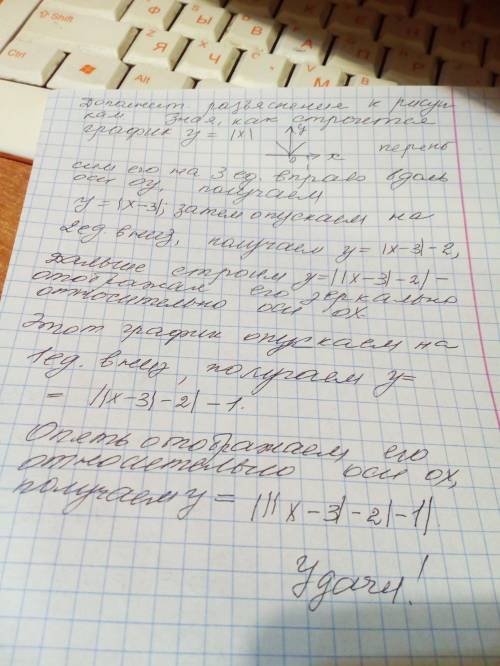 Shift
Ctrl
Alt
Ф
Ы
В
Я
Ч
С
М
Дополнит разъяснения к рисун-
кам Зная, как строится
график y = |x| y x 0 перене
сем его на 3 ед. вправо вдоль
оси oy, получаем
y = |x-3|; затем опускаем на
2ед вниз, получаем y = |x-3|-2,
Дальше строим y=||x-3|-2| -
отображая его зеркально
относительно оси ox
Этот график опускаем на
1ед. вниз, получаем y=
= ||x-3|-2|-1.
Опять отображаем его
относительно оси ox,
получаем y = |||x-3|-2|-1|
Удачи!